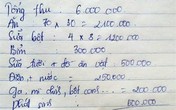 Tổng thu: 6.000.000
Ăn 70 x 30 = 2.100.000
Sữa bột: 4 x 3 = 1200.000
Bỉm: 300.000
Sữa tươi + đồ ăn vặt 500.000
Điện + nước = 250.000
Ga, mì chính, bột canh... = 200.000
500.000